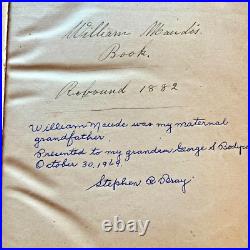 William Maude's
Book.
Rebound 1882
William Maude was my maternal
grandfather
Presented to my grandson George S
October 30, 1969
Stephen